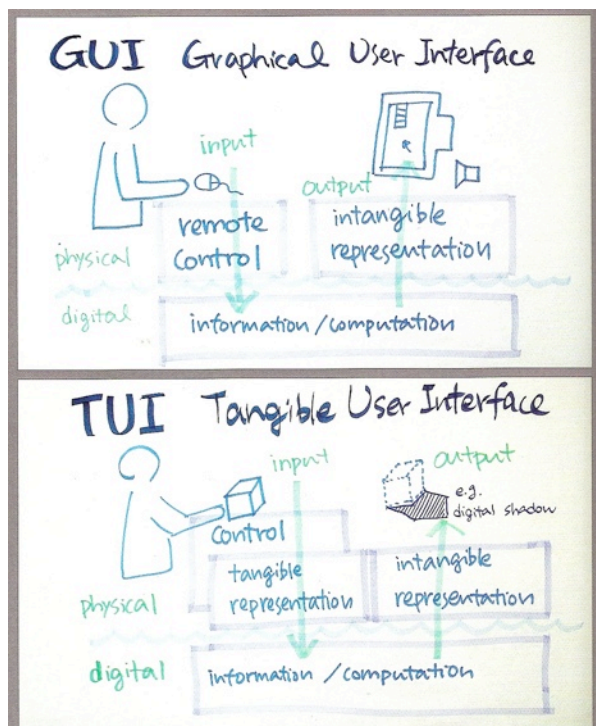 GUI Graphical User Interface
input
output
remote
control
intangible
representation
physical
digital
information / computation
TUI Tangible User Interface
input
output
e.g.
digital shadow
control
tangible
representation
intangible
representation
physical
digital
information / computation